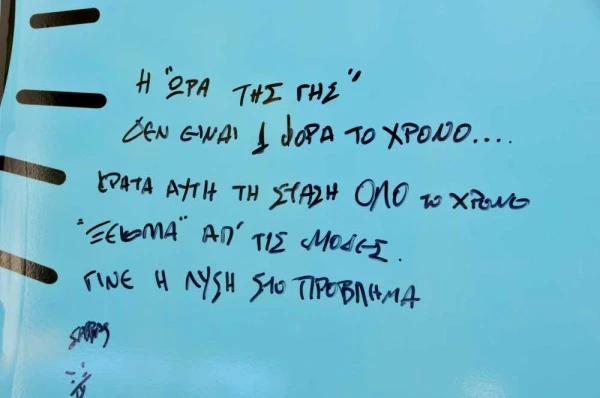 Η "ΩΡΑ ΤΗΣ ΓΗΣ"
ΔΕΝ ΕΙΝΑΙ 1 ΦΟΡΑ ΤΟ ΧΡΟΝΟ....
ΚΡΑΤΑ ΑΥΤΗ ΤΗ ΣΤΑΣΗ ΟΛΟ ΤΟ ΧΡΟΝΟ
"ΞΕΚΟΛΛΑ" ΑΠ' ΤΙΣ ΜΟΔΕΣ.
ΓΙΝΕ Η ΛΥΣΗ ΣΤΟ ΠΡΟΒΛΗΜΑ